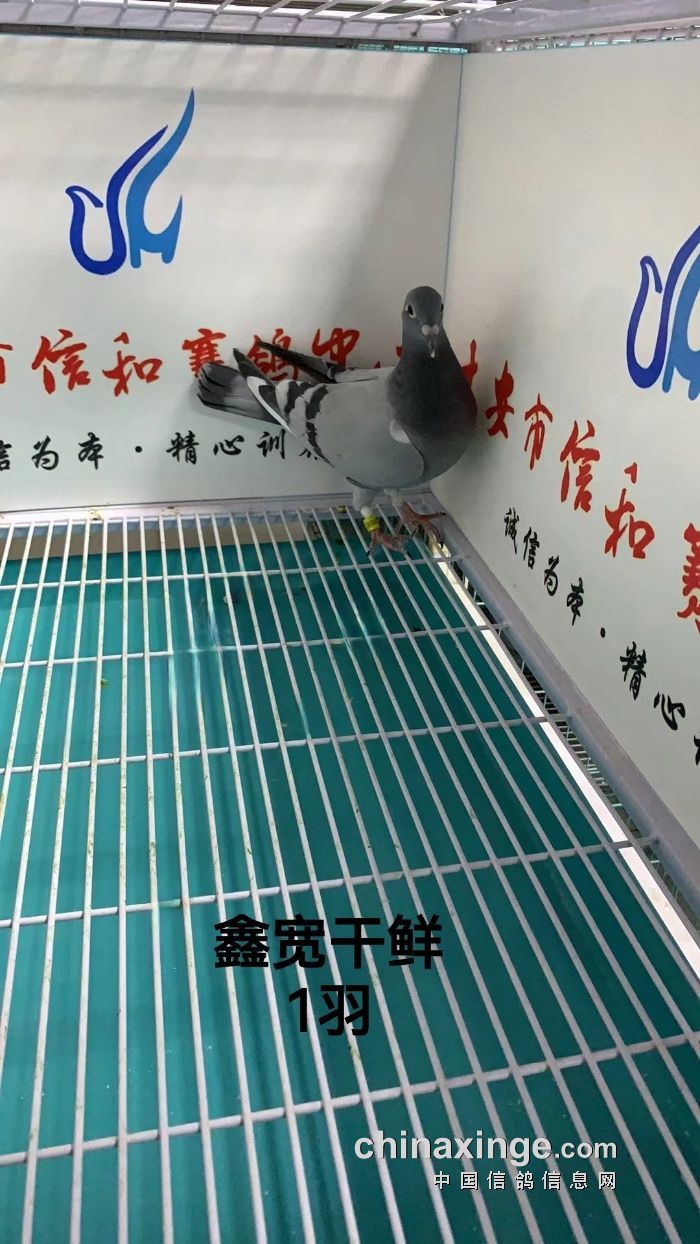 市信和赛鸽中心
信为本·精心训
安市信和赛
诚信为本·精心
鑫宽干鲜
1羽
chinaxinge.com
中国信鸽信息网